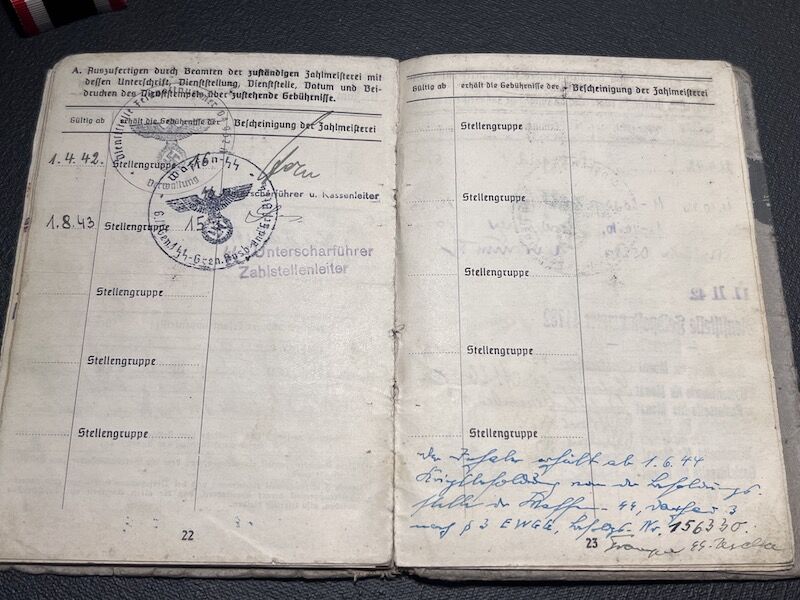 A. Auszufertigen durch Beamten der zuständigen Zahlmeisterei mit
dessen Unterschrift, Dienststellung, Dienststelle, Datum und Bei-
drucken des Dienststempels über zustehende Gebührnisse.
Gültig ab erhält die Gebührnisse der Bescheinigung der Zahlmeisterei
1.4.42. Stellengruppe 16
Dienststelle Feldpostnummer
Verwaltung
Waffen-SS
Unterscharführer u. Kassenleiter
1.8.43 Stellengruppe 15
SS-Unterscharführer
Zahlstellenleiter
Stellengruppe
Stellengruppe
Stellengruppe
22
Gültig ab erhält die Gebührnisse der Bescheinigung der Zahlmeisterei
Stellengruppe
Stellengruppe
Stellengruppe
Stellengruppe
Stellengruppe
Der Inhaber erhält ab 1.6.44
Kriegsbesoldung von der Besoldungs-
stelle der Waffen-SS,
nach § 3 EWGG, Nr. 156330.
23